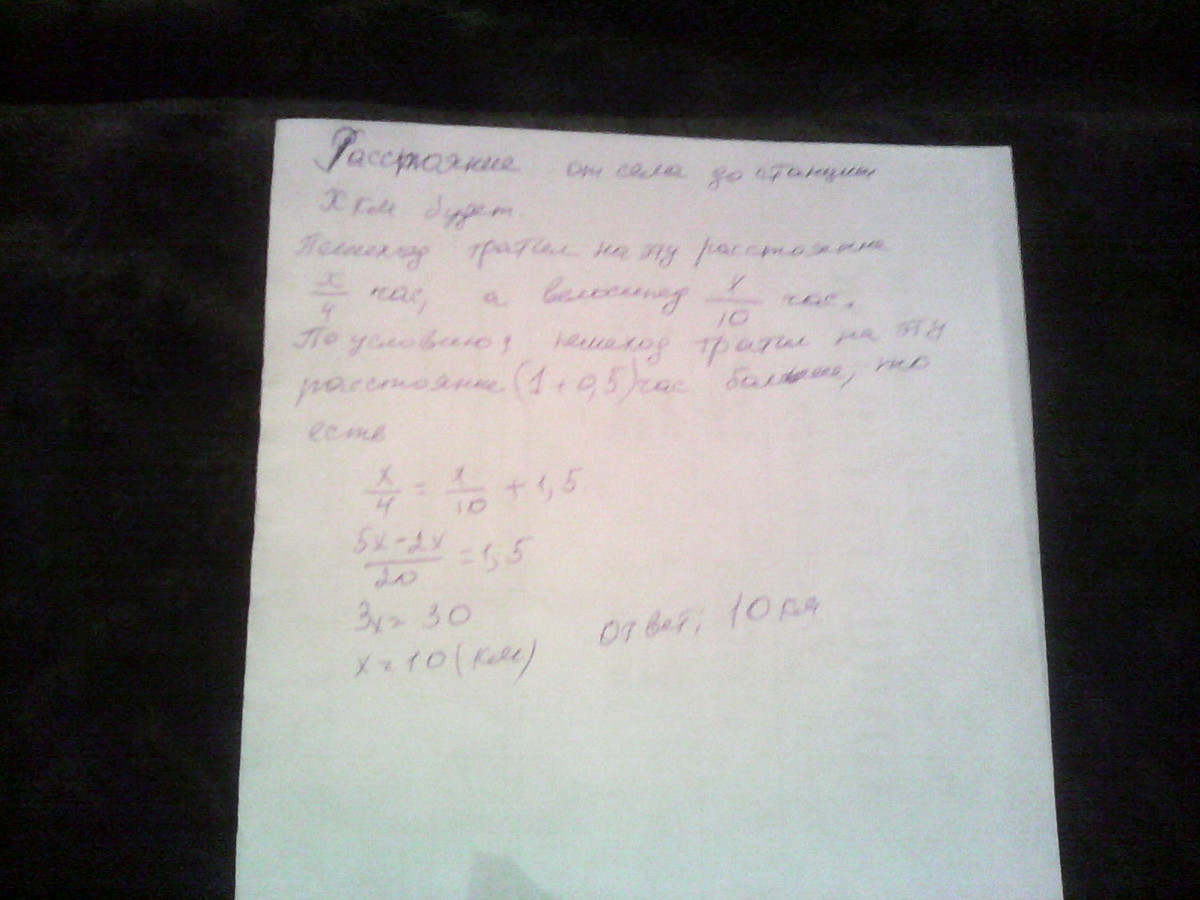 Расстояние от села до станции
х км будет.
Пешеход тратил на эту расстояние
x/4 час, а велосипед x/10 час.
По условию, пешеход тратил на эту
расстояние (1 + 0,5) час больше, то
есть
x/4 = x/10 + 1,5
5x-2x/20 = 1,5
3x = 30
x = 10 (км) ответ: 10 км